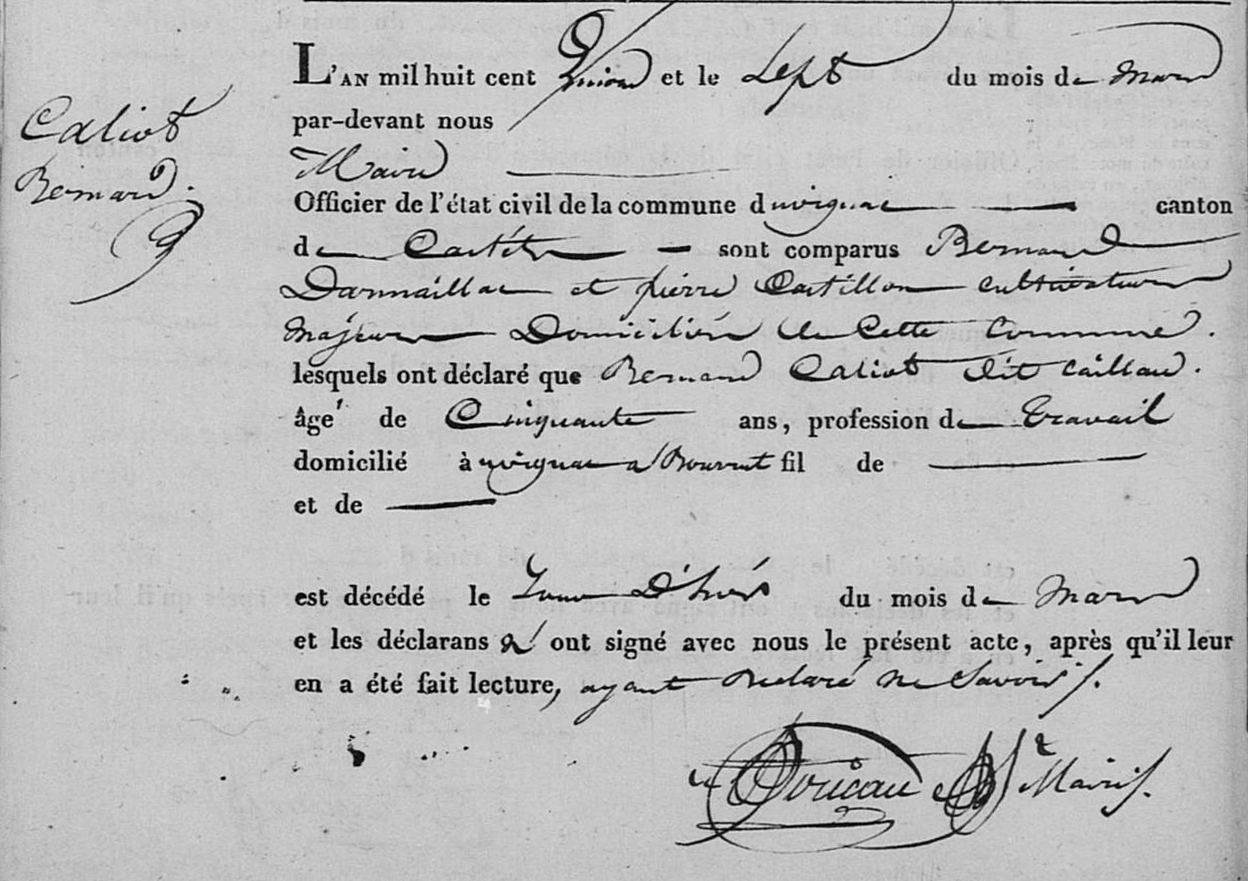 Caliot
Bernard.
L'AN mil huit cent Quinze et le Sept du mois de Mars
par-devant nous
Maire
Officier de l'état civil de la commune d'uvignac canton
de Castets sont comparus Bernard
Darmaillac et pierre Castillon cultivateurs
Majeurs Domiciliés de Cette Commune.
lesquels ont déclaré que Bernard Caliot dit caillau.
âgé de Cinquante ans, profession de travail
domicilié à uvignac a fil de
et de
est décédé le Jour D'hier du mois de Mars
et les déclarans n' ont signé avec nous le présent acte, après qu'il leur
en a été fait lecture, ayant Declaré ne Savoir.
Maire.